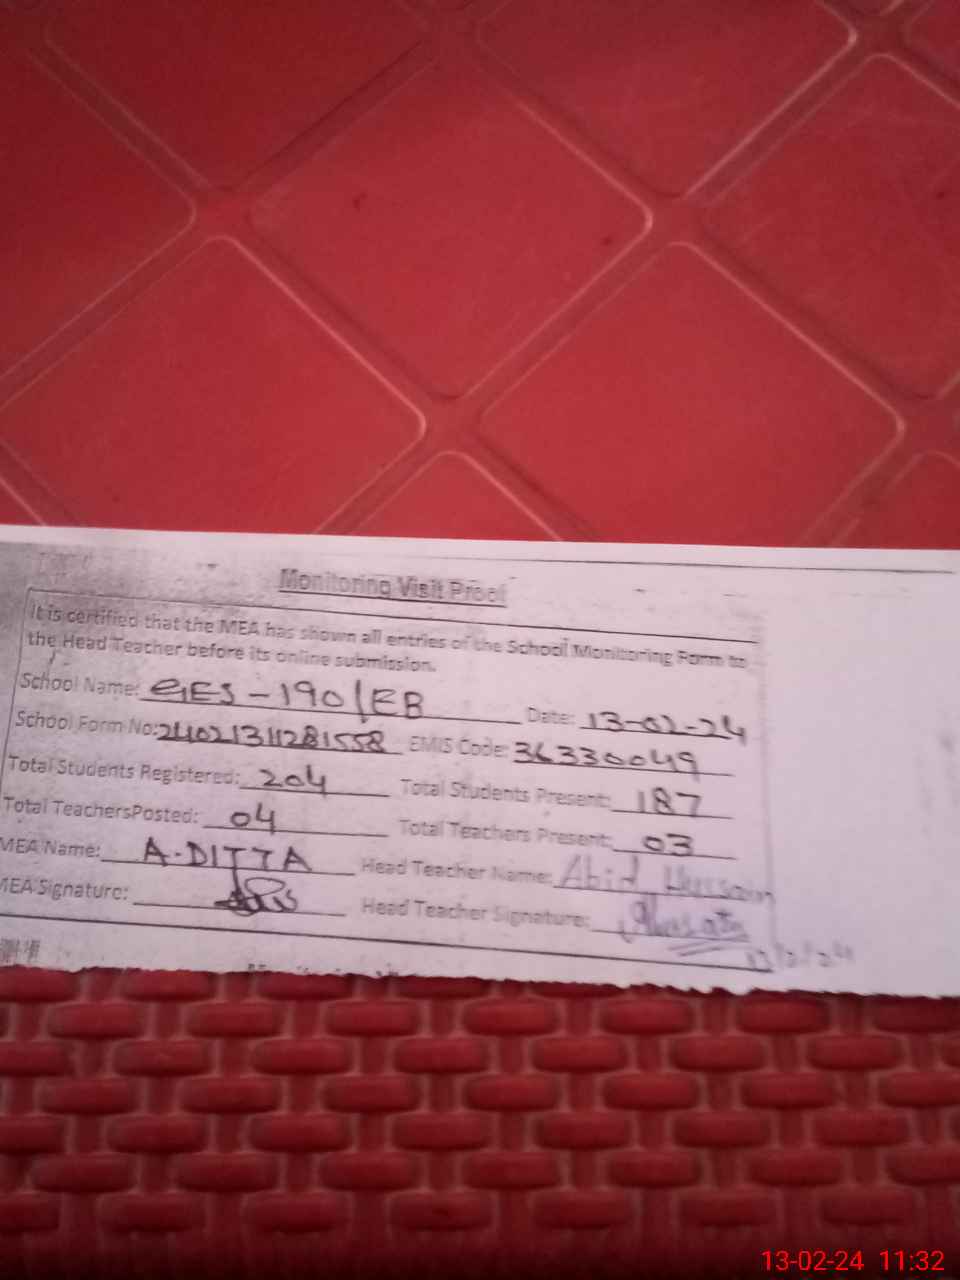 Monitoring Visit Proof
It is certified that the MEA has shown all entries of the School Monitoring Form to
the Head Teacher before its online submission.
School Name: GES - 190/EB Date: 13-02-24
School Form No: 24021311281558 EMIS Code: 36330049
Total Students Registered: 204 Total Students Present: 187
Total TeachersPosted: 04 Total Teachers Present: 03
MEA Name: A-DITTA Head Teacher Name: Abid Hussain
MEA Signature: Head Teacher Signature:
13-02-24 11:32